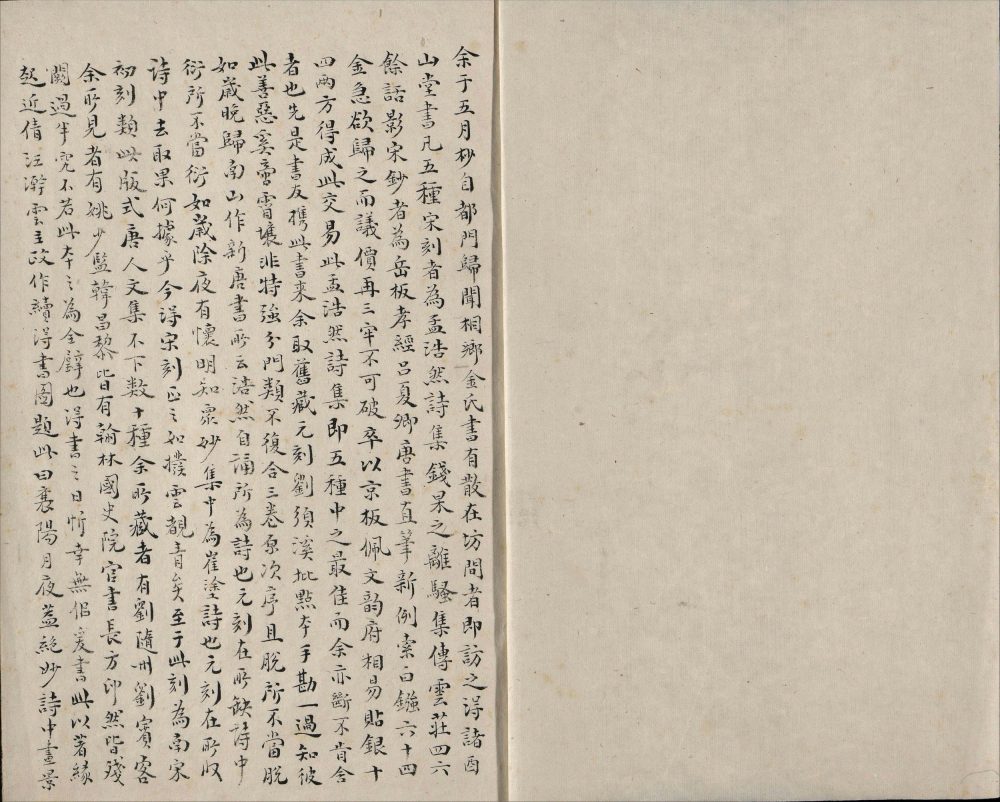 余于五月杪自都門歸聞桐鄉金氏書有散在坊間者即訪之得諸酉
山堂書凡五種宋刻者為孟浩然詩集錢杲之離騷集傳雲莊四六
餘話影宋鈔者為岳板孝經呂夏卿唐書直筆新例索白鏹六十四
金急欲歸之而議價再三牢不可破卒以京板佩文韵府相易貼銀十
四兩方得成此交易此孟浩然詩集即五種中之最佳而余亦斷不肯舍
者也先是書友攜此書來余取舊藏元刻劉須溪批點本手勘一過知彼
此善惡奚啻霄壤非特強分門類不復合三卷原次序且脫所不當脫
如歲晚歸南山作新唐書所云浩然自誦所為詩也元刻在所缺詩中
衍所不當衍如歲除夜有懷明知衆妙集中為崔塗詩也元刻在所收
詩中去取果何據乎今得宋刻正之如撥雲覩青矣至于此刻為南宋
初刻類此版式唐人文集不下數十種余所藏者有劉隨州劉賓客
余所見者有姚少監韓昌黎皆有翰林國史院官書長方印然皆殘
闕過半究不若此本之為全璧也得書之日忻幸無侣爰書此以著緣
起近倩汪瀚雲主政作續得書圖題此曰襄陽月夜蓋絕妙詩中畫景